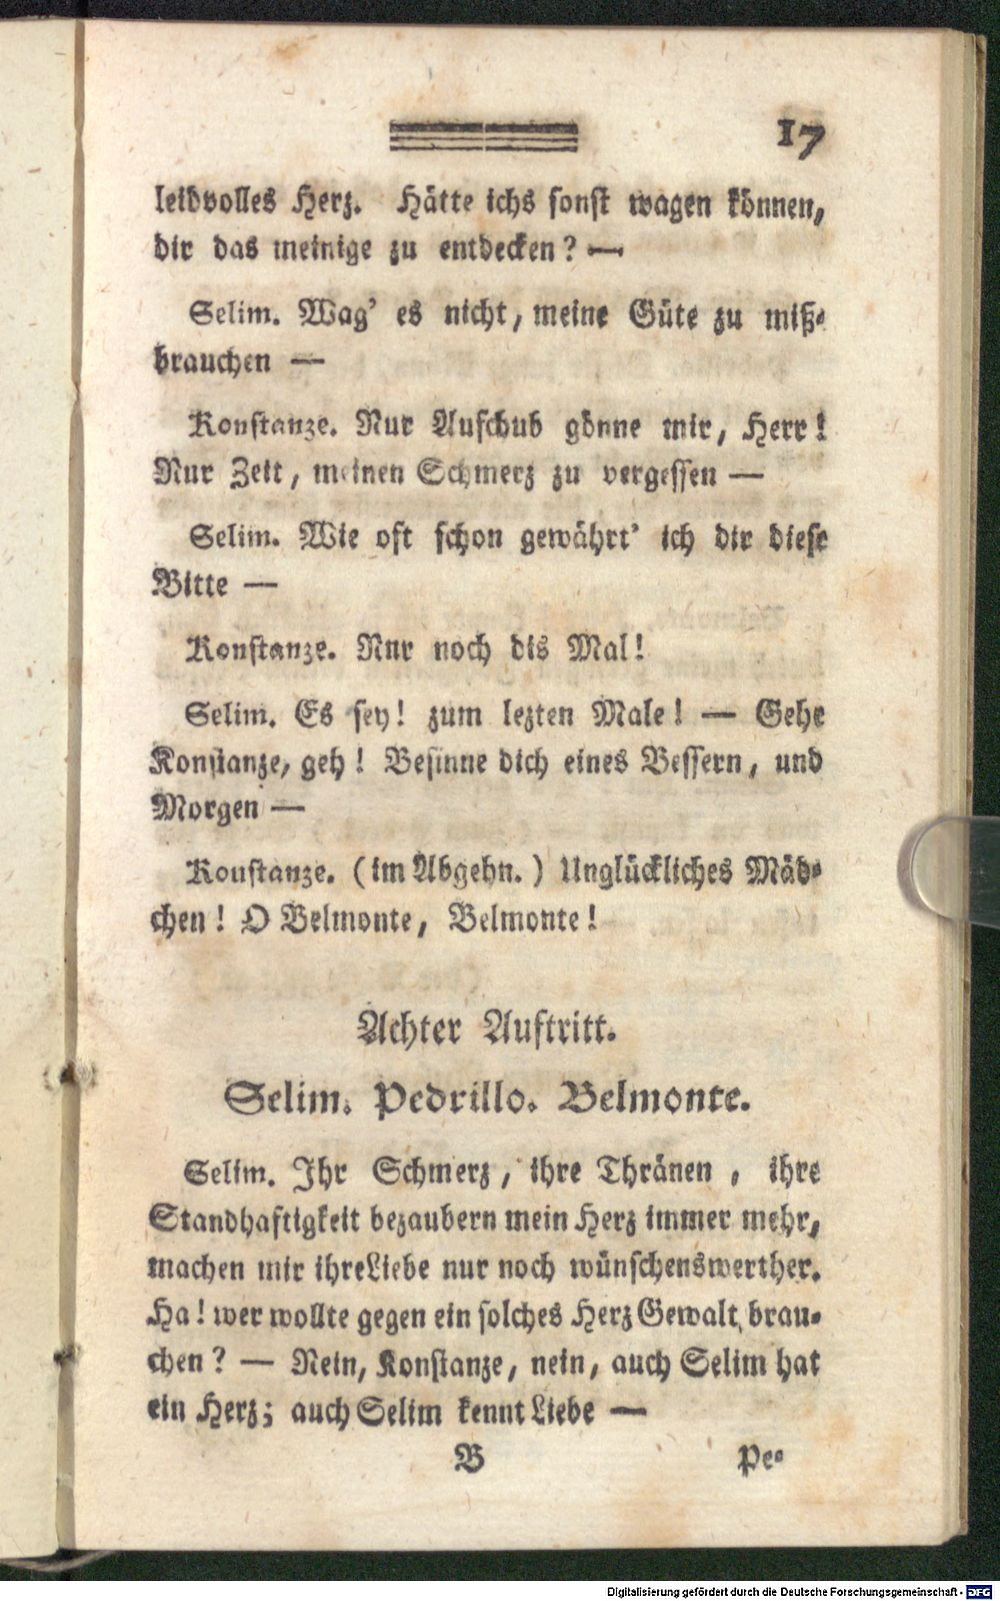 17
leidvolles Herz. Hätte ichs sonst wagen können,
dir das meinige zu entdecken? —
Selim. Wag' es nicht, meine Güte zu miß-
brauchen —
Konstanze. Nur Aufschub gönne mir, Herr!
Nur Zeit, meinen Schmerz zu vergessen —
Selim. Wie oft schon gewährt' ich dir diese
Bitte —
Konstanze. Nur noch dis Mal!
Selim. Es sey! zum lezten Male! — Gehe
Konstanze, geh! Besinne dich eines Bessern, und
Morgen —
Konstanze. (im Abgehn.) Unglückliches Mäd-
chen! O Belmonte, Belmonte!
Achter Auftritt.
Selim. Pedrillo. Belmonte.
Selim. Ihr Schmerz, ihre Thränen, ihre
Standhaftigkeit bezaubern mein Herz immer mehr,
machen mir ihre Liebe nur noch wünschenswerther.
Ha! wer wollte gegen ein solches Herz Gewalt brau-
chen? — Nein, Konstanze, nein, auch Selim hat
ein Herz; auch Selim kennt Liebe —
B Pe-
Digitalisierung gefördert durch die Deutsche Forschungsgemeinschaft - DFG